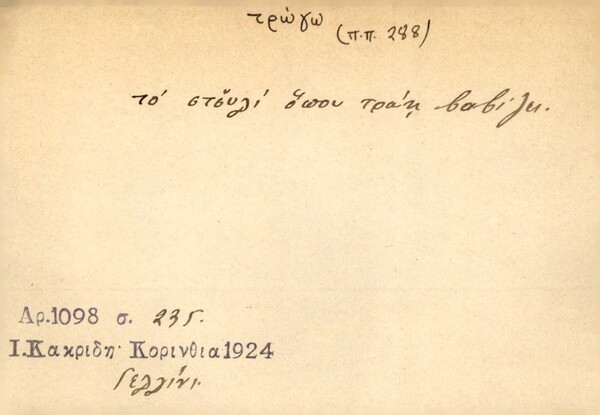 τρώγω
(π.π. 288)
τό στσυλί ὅπου τράῃ βαβίζει.
Αρ.1098 σ. 235.
Ι.Κακριδη· Κορινθια 1924
Γελλίνι.